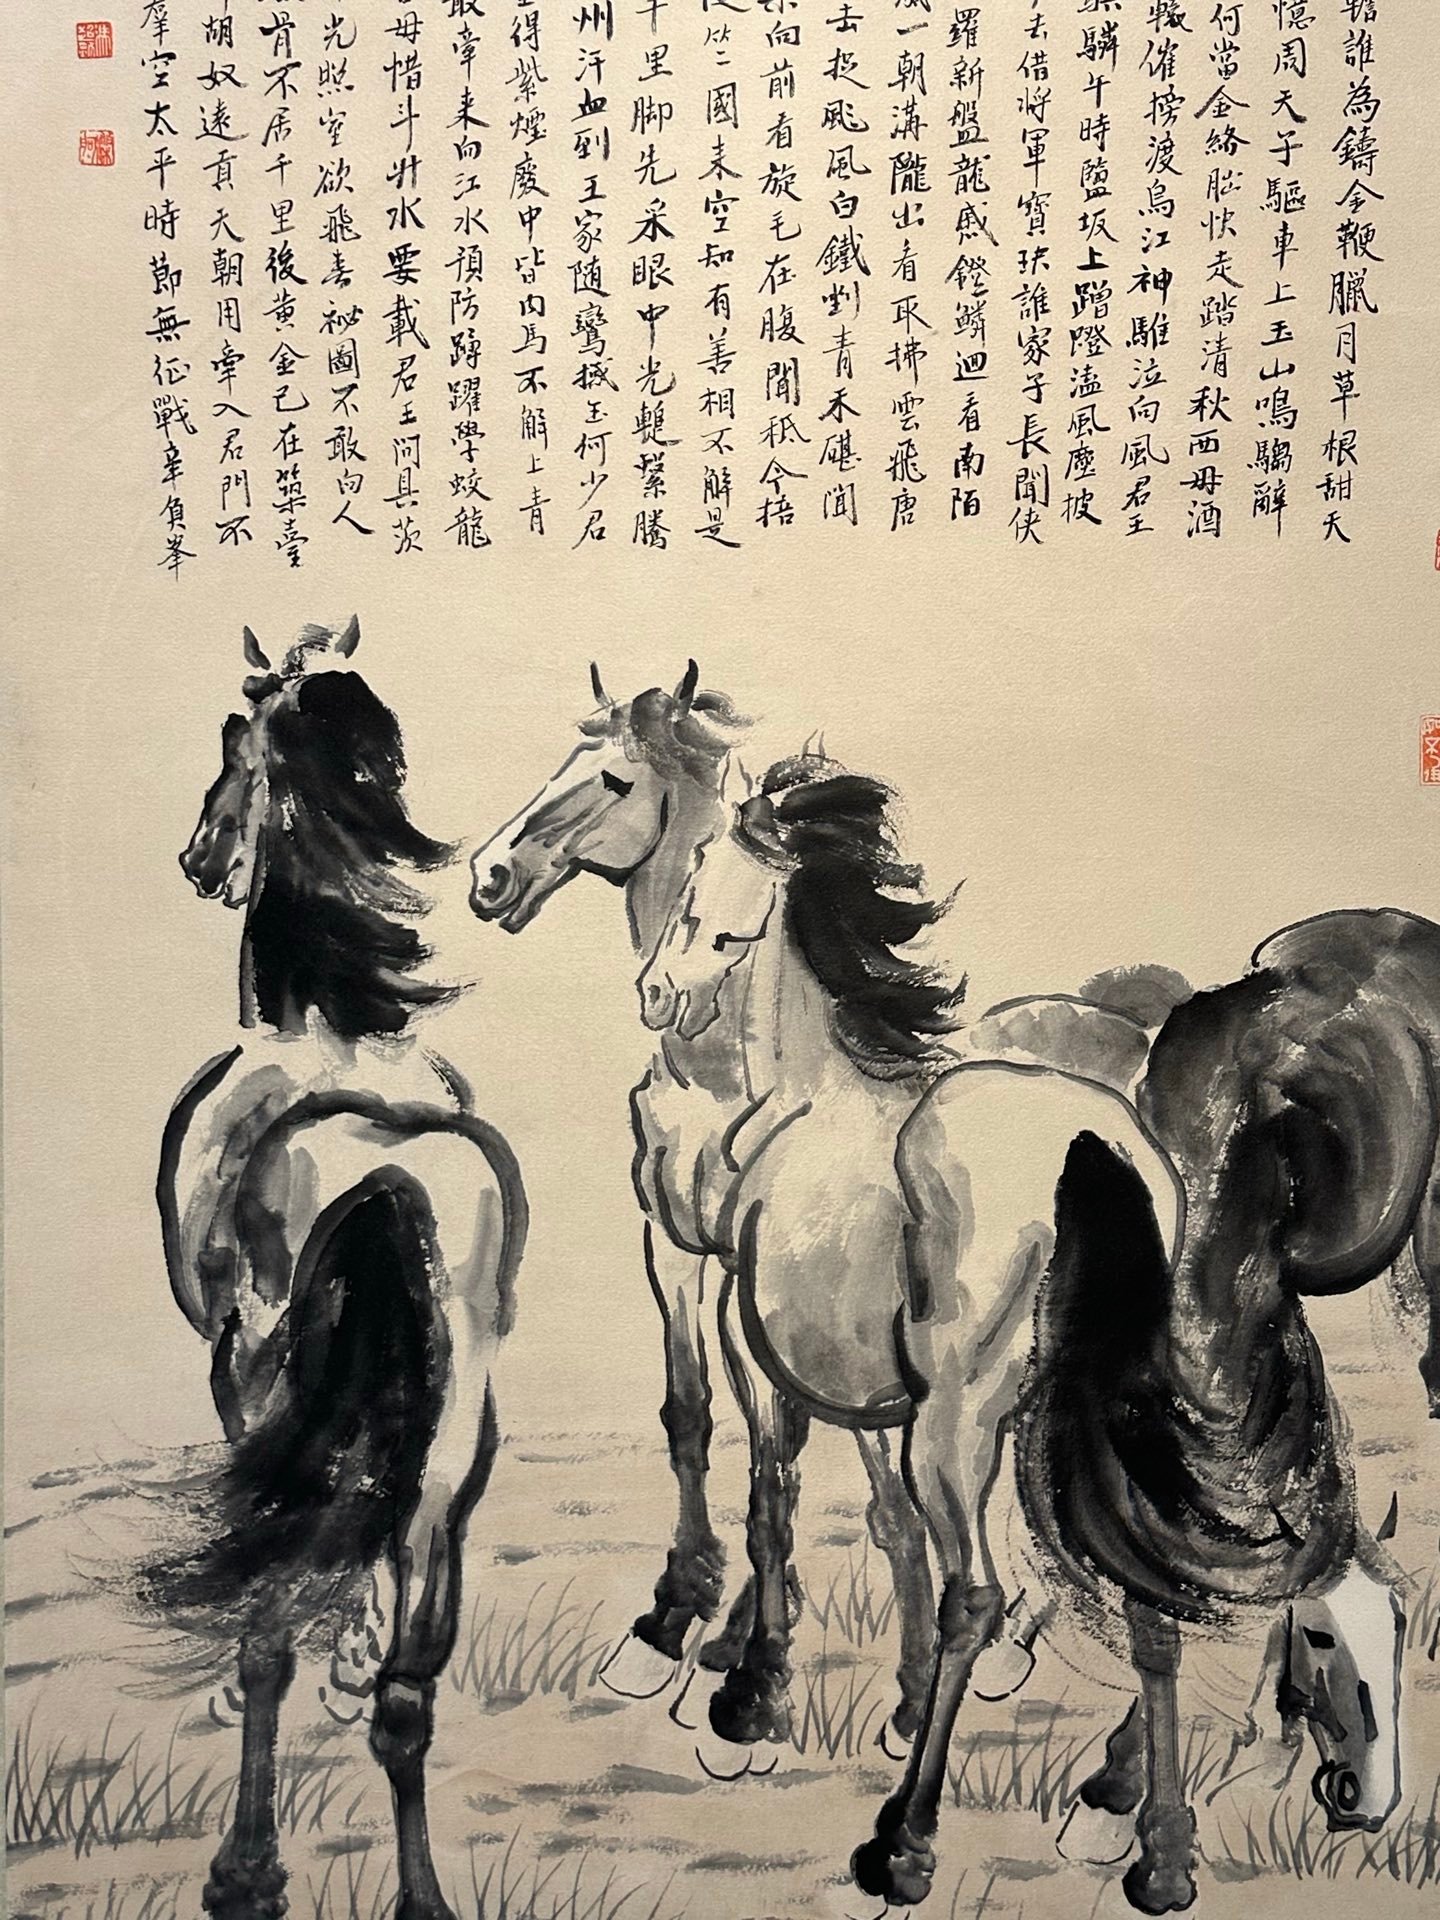 誰為鑄金鞭臘月草根甜天
憶周天子驅車上玉山鳴騶辭
何當金絡腦快走踏清秋西母酒
轅催榜渡烏江神騅泣向風君王
驎午時鹽坂上蹭蹬溘風塵披
去借將軍寶玦誰家子長聞俠
羅新盤龍蹙鐙鱗迴看南陌
一朝溝隴出看取拂雲飛唐
去捉颷風白鐵剉青禾碪聞
向前看旋毛在腹聞秪今掊
竺國来空知有善相不解是
千里脚先采眼中光鬉繫騰
州汗血到王家随鸞撼玉何少君
得紫煙廢中皆肉馬不解上青
最牽来向江水預防蹲躍學蛟龍
毋惜斗升水要載君王問具茨
光照室欲飛春祕圖不敢向人
骨不居千里後黄金已在築臺
胡奴遠貢天朝用牽入君門不
羣空太平時節無征戰辜負峯